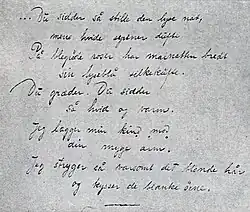 ... Du sidder så stille den lyse nat,
mens hvide syrener dufte
På blegrøde roser har mainatten bredt
sin lyseblå silkekåpe.
Du græder. Du sidder
så hvid og varm.
Jeg lægger min kind mod
din myge arm.
Jeg stryger så varsomt det blonde hår
og kysser de blanke øine.